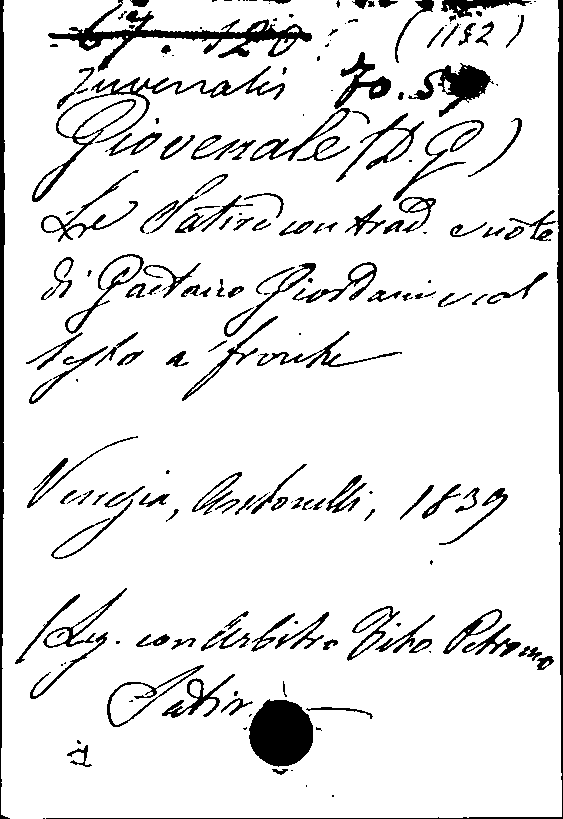 67. 120 (1132)
Juvenalis 70.5
Giovenale (D. G)
Le Satire con trad. e note
di Gaetano Giordani e col
testo a fronte
Venezia, Antonelli, 1839
(Leg. con Arbitro Tito Petronio
Satir